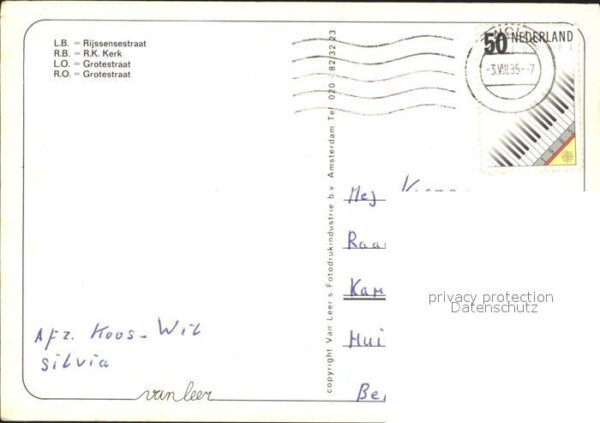 L.B. = Rijssensestraat
R.B. = R.K. Kerk
L.O. = Grotestraat
R.O. = Grotestraat
50 NEDERLAND
-3.VIII.85-7
copyright Van Leer's Fotodrukindustrie b.v. Amsterdam Tel. 020 - 82 32 23
Mej
Raa
Kam
Hui
Be
privacy protection
Datenschutz
Afz. Koos-Wil
Silvia
van leer